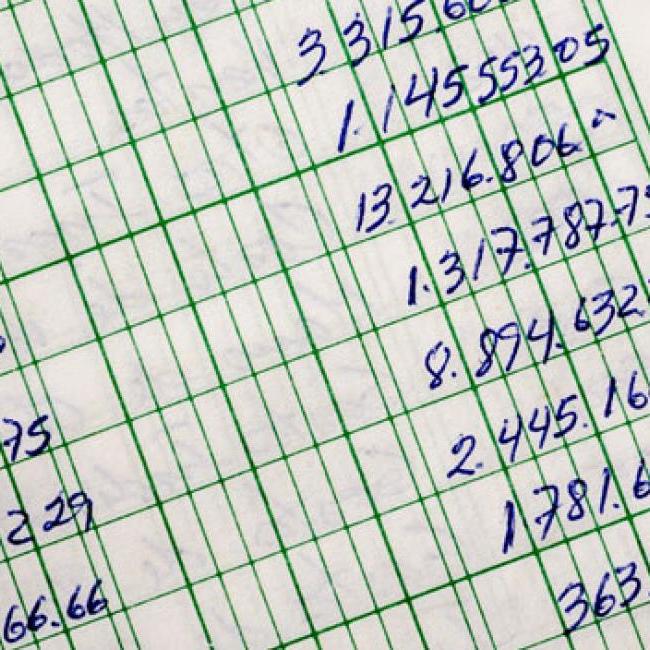 3.315.60
1.14555305
13.216.806
1.317.787.75
8.894.632
2.445.16
75
1781.6
229
363.
66.66